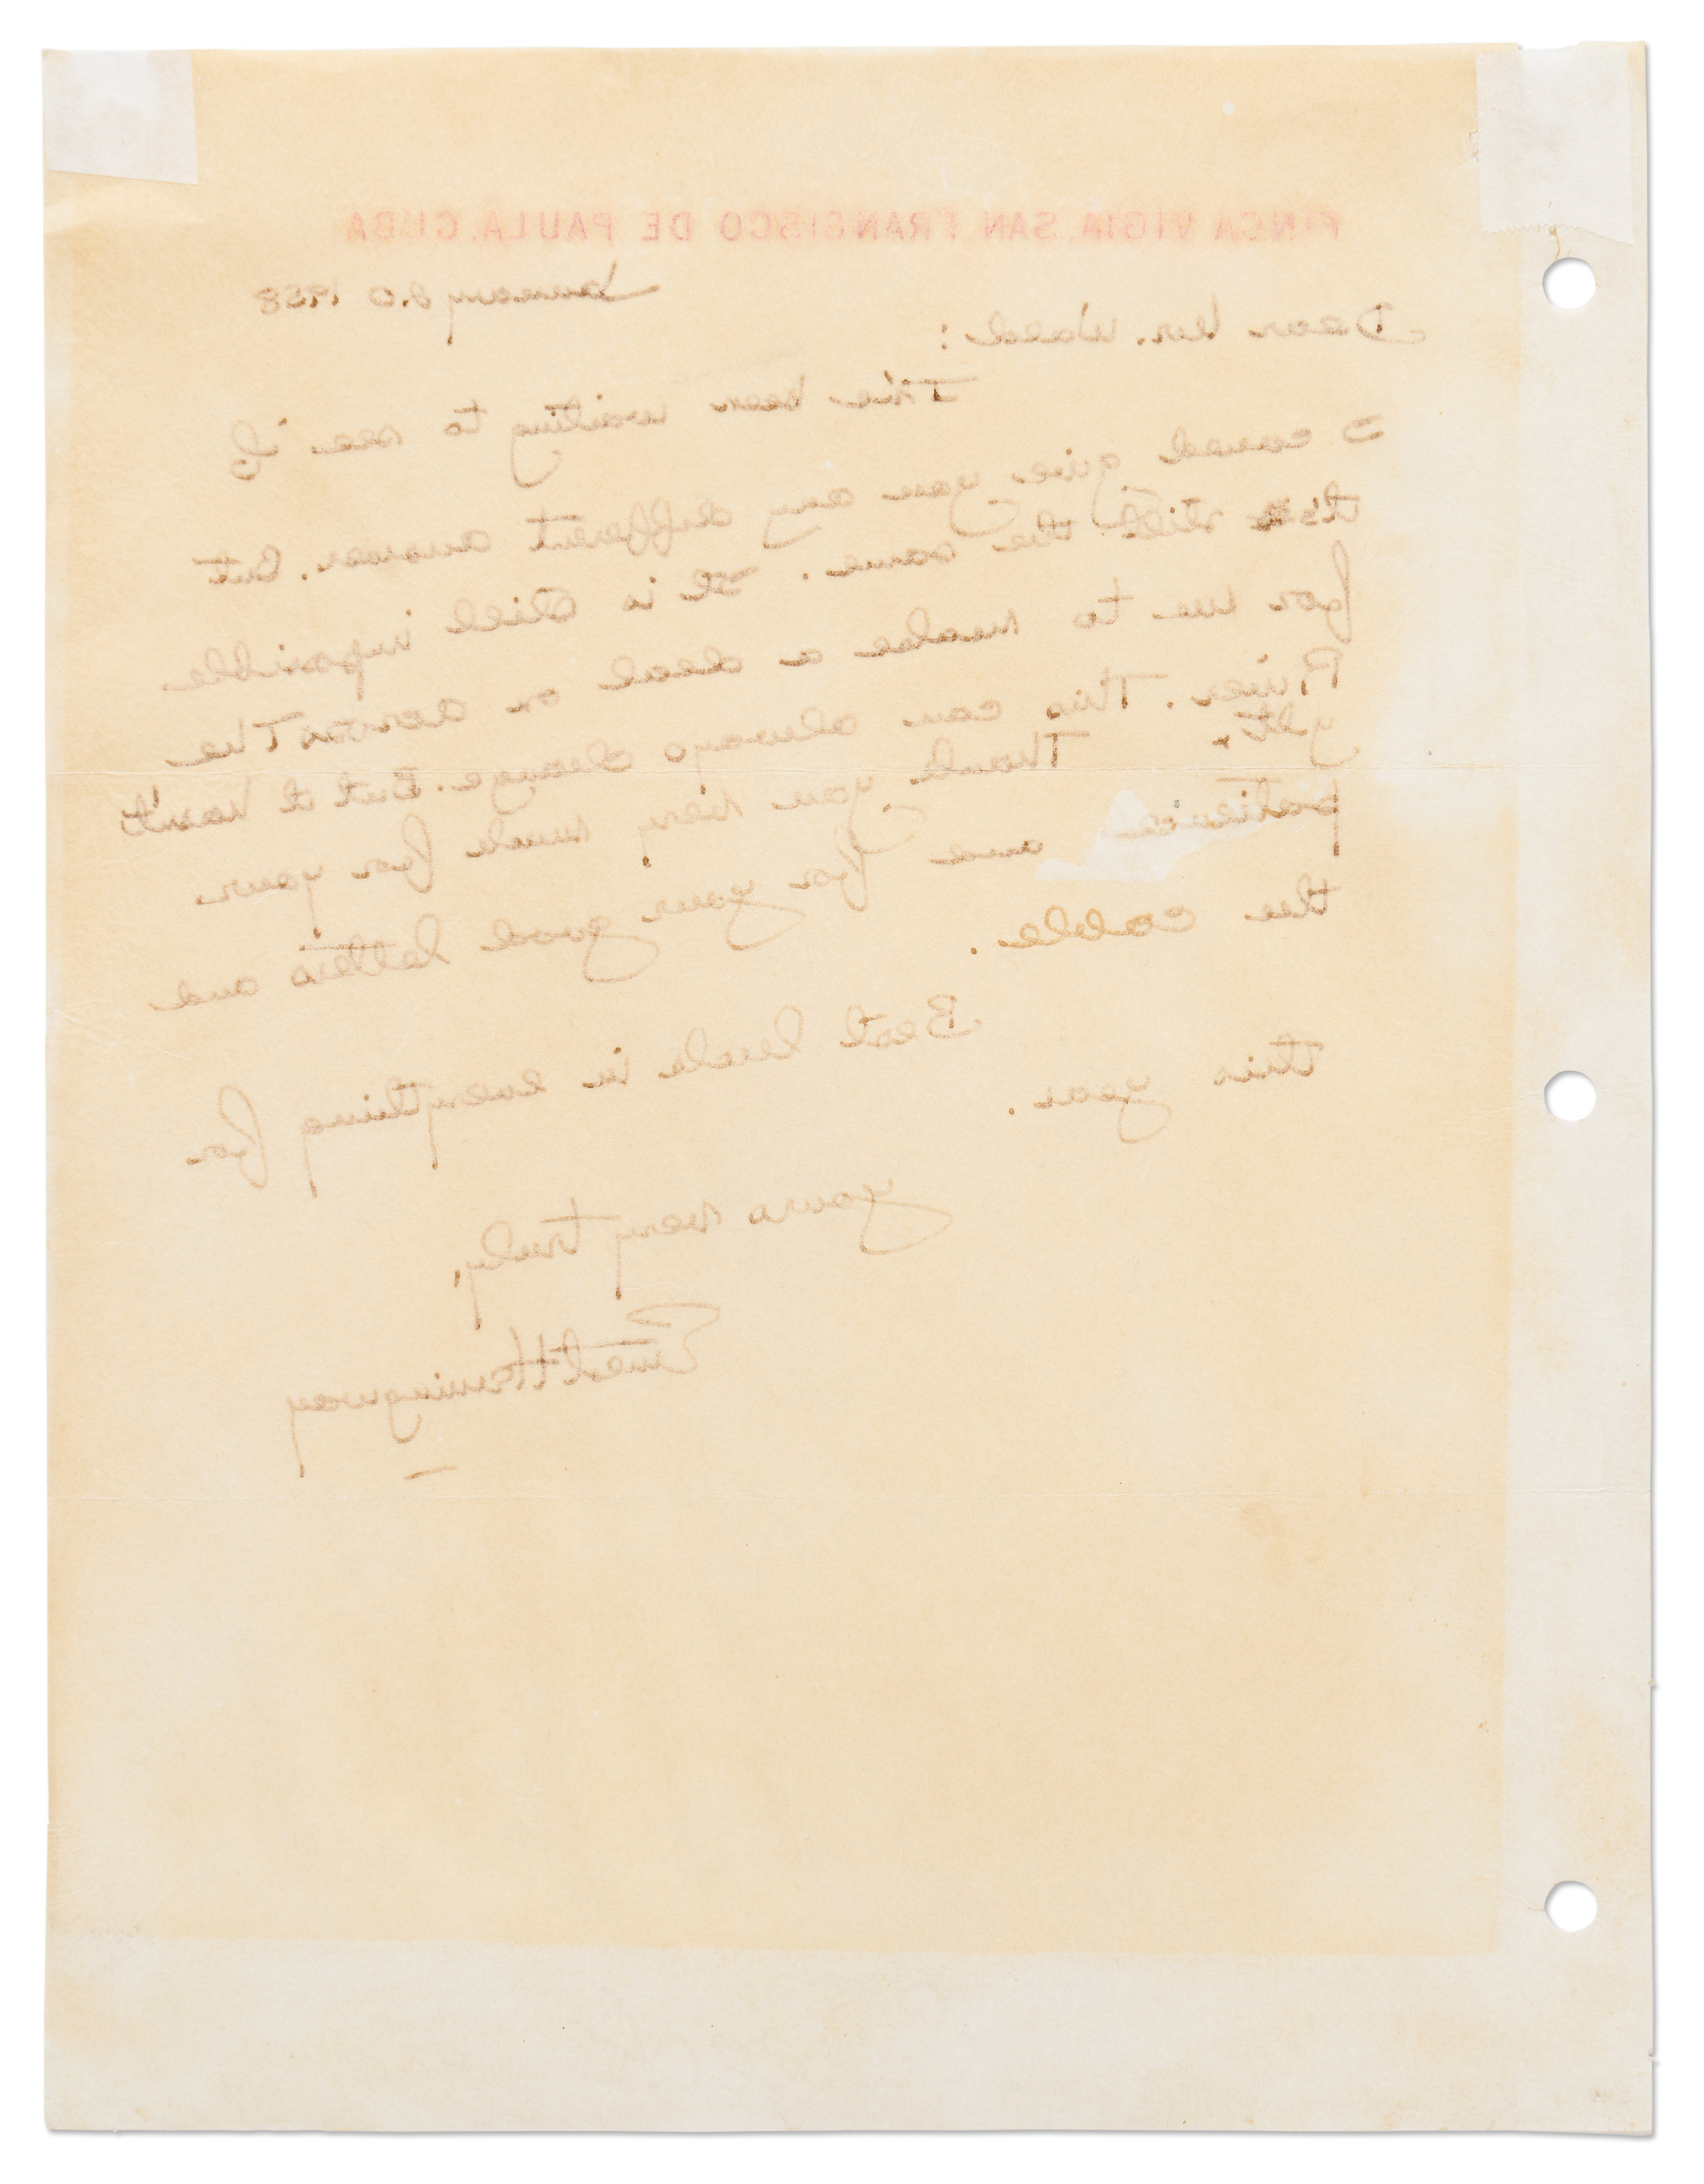 FINCA VIGIA, SAN FRANCISCO DE PAULA, CUBA
January 20 1958
Dear Mr. Wald:
I've been waiting to see if
I could give you any different answer. But
it's still the same. It is still impossible
for me to make a deal on Across The
River. This can always change. But it hasn't
yet. Thank you very much for your
patience and for your good letters and
the cable.
Best luck in everything for
this year.
Yours very truly,
Ernest Hemingway